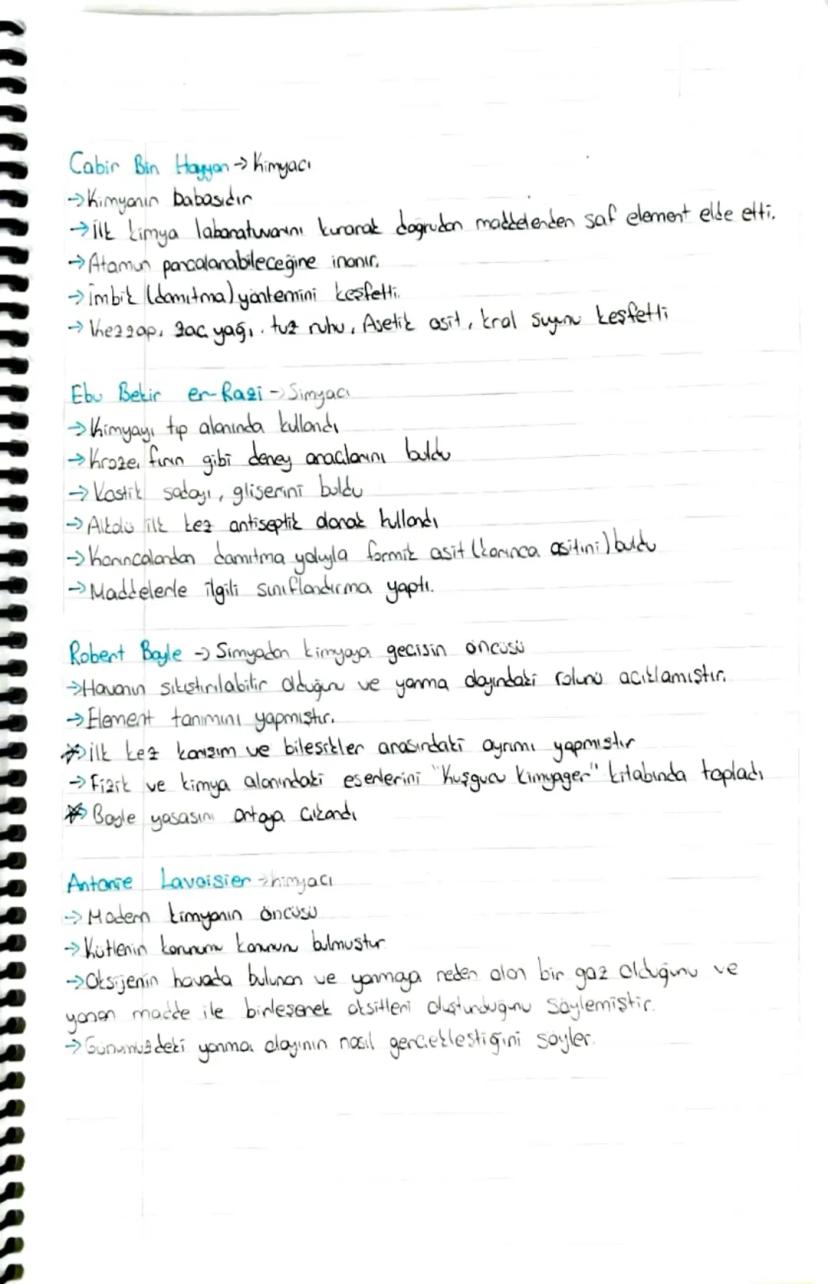 Cabir Bin Hayyan → Kimyacı
→ Kimyanın babasıdır
→ İlk kimya labaratuvarını kurarak doğrudan maddelerden saf element elde etti.
→ Atomun parcalanabileceğine inanır.
→ İmbik (damıtma) yöntemini keşfetti.
→ Kezzap, zac yağı, tuz ruhu, Asetik asit, kral suyunu keşfetti
Ebu Bekir er-Razi → Simyacı
→ Kimyayı tıp alanında kullandı
→ Kroze, fırın gibi deney araclarını buldu
→ Kostik sodayı, gliserini buldu
→ Alkolü ilk kez antiseptik olarak kullandı
→ Karıncalardan damıtma yoluyla formik asit (karınca asitini) buldu
→ Maddelerle ilgili sınıflandırma yaptı.
Robert Boyle → Simyadan kimyaya gecisin öncüsü
→ Havanın sıkıstırılabilir olduğunu ve yanma olayındaki rolunü acıklamıştır.
→ Element tanımını yapmıştır.
→ İlk kez karısım ve bilesikler arasındaki ayrımı yapmıstır
→ Fizik ve kimya alanındaki eserlerini "Kuşgucu Kimyager" kitabında topladı
→ Boyle yasasını ortaya cıkardı
Antonie Lavoisier → kimyacı
→ Modern kimyanın öncüsü
→ Kütlenin korunum kanunun bulmustur
→ Oksijenin havada bulunan ve yanmaya neden olan bir gaz olduğunu ve
yanan madde ile birleserek oksitleri olusturduğunu söylemistir.
→ Günümüzdeki yanma olayının nasıl gercekleştiğini söyler.